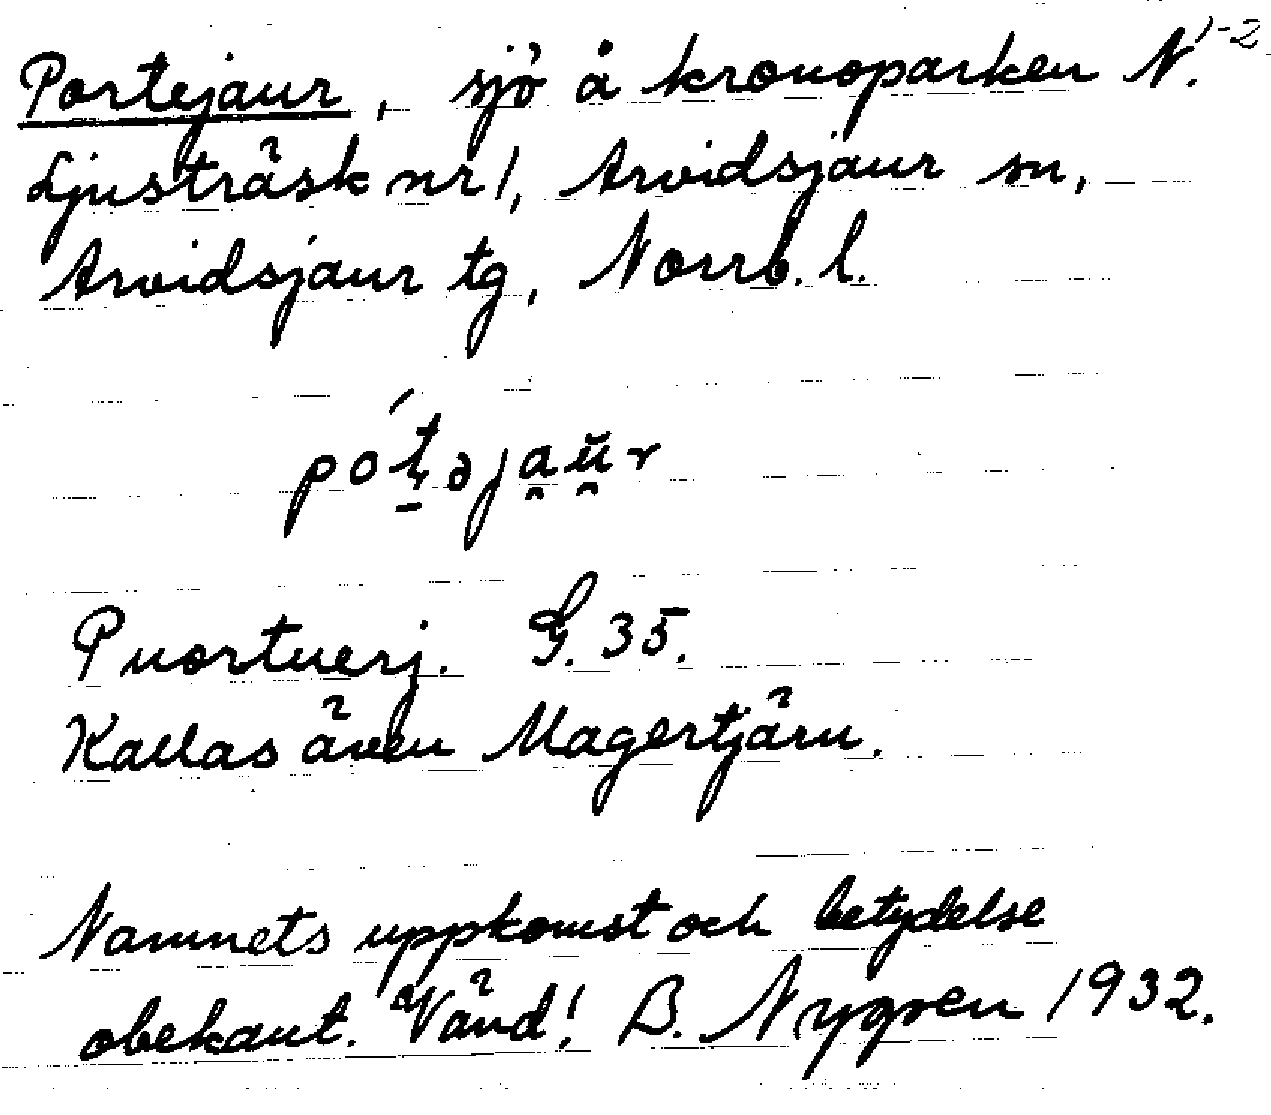 Portejaur, sjö å kronoparken N. 1-2
Ljusträsk nr 1, Arvidsjaur sn,
Arvidsjaur tg, Norrb. l.
Puortuerj. G. 35.
Kallas även Magertjärn.
Namnets uppkomst och betydelse
obekant. Vänd! B. Nygren 1932.